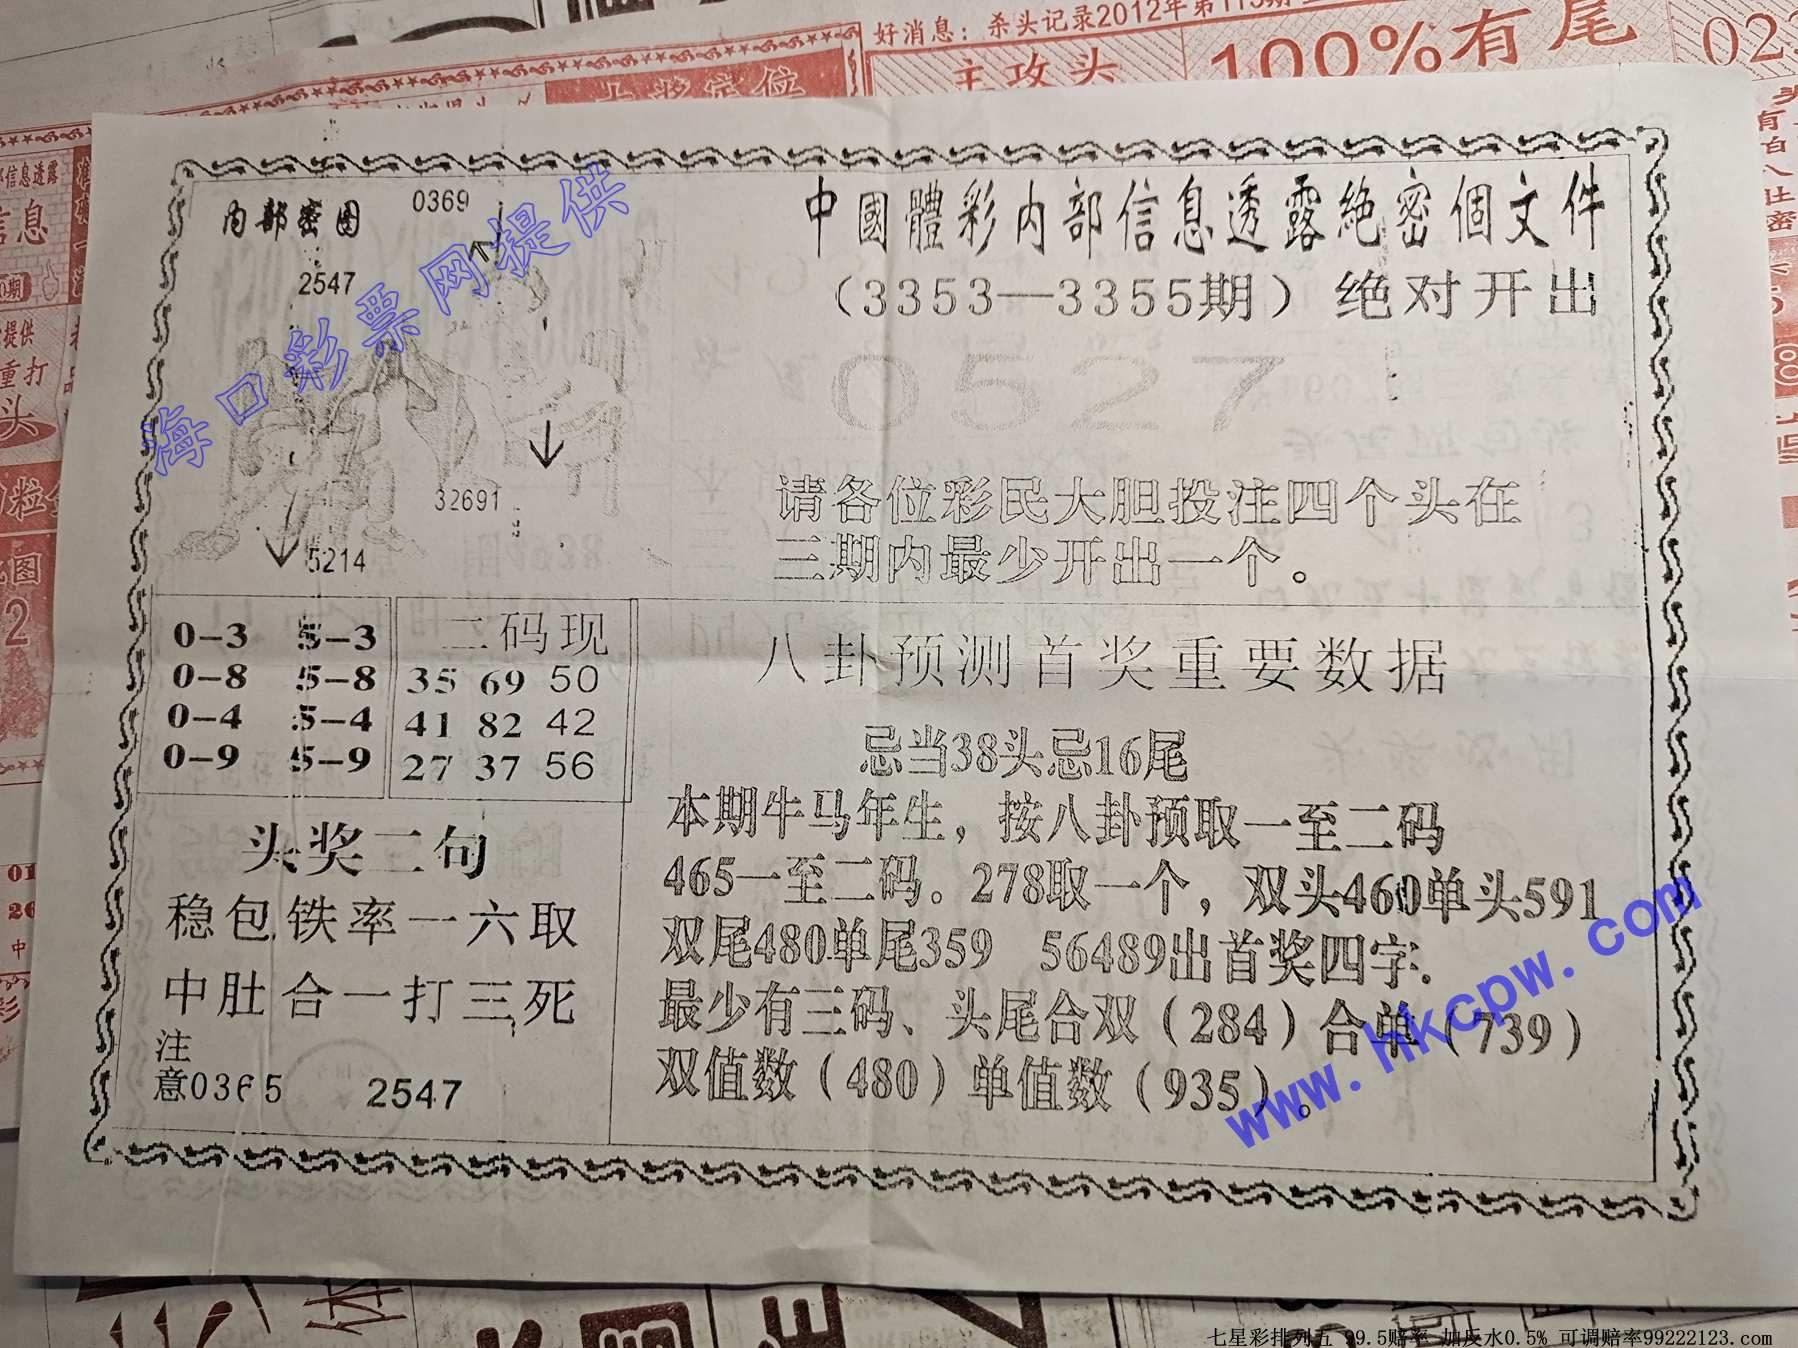 好消息：杀头记录2012年第113期
主攻头
100%有尾
内部密图
0369
2547
32691
5214
海口彩票网提供
中國體彩内部信息透露绝密個文件
（3353—3355期）绝对开出
0527
请各位彩民大胆投注四个头在
三期内最少开出一个。
0-3 5-3
0-8 5-8
0-4 5-4
0-9 5-9
二码现
35 69 50
41 82 42
27 37 56
头奖二句
稳包铁率一六取
中肚合一打三死
注
意0365 2547
八卦预测首奖重要数据
忌当38头忌16尾
本期牛马年生，按八卦预取一至二码
465一至二码．278取一个，双头460单头591
双尾480单尾359 56489出首奖四字．
最少有三码、头尾合双（284）合单（739）
双值数（480）单值数（935）。
www.hkcpw.com
七星彩排列五 99.5赔率 加反水0.5% 可调赔率99222123.com